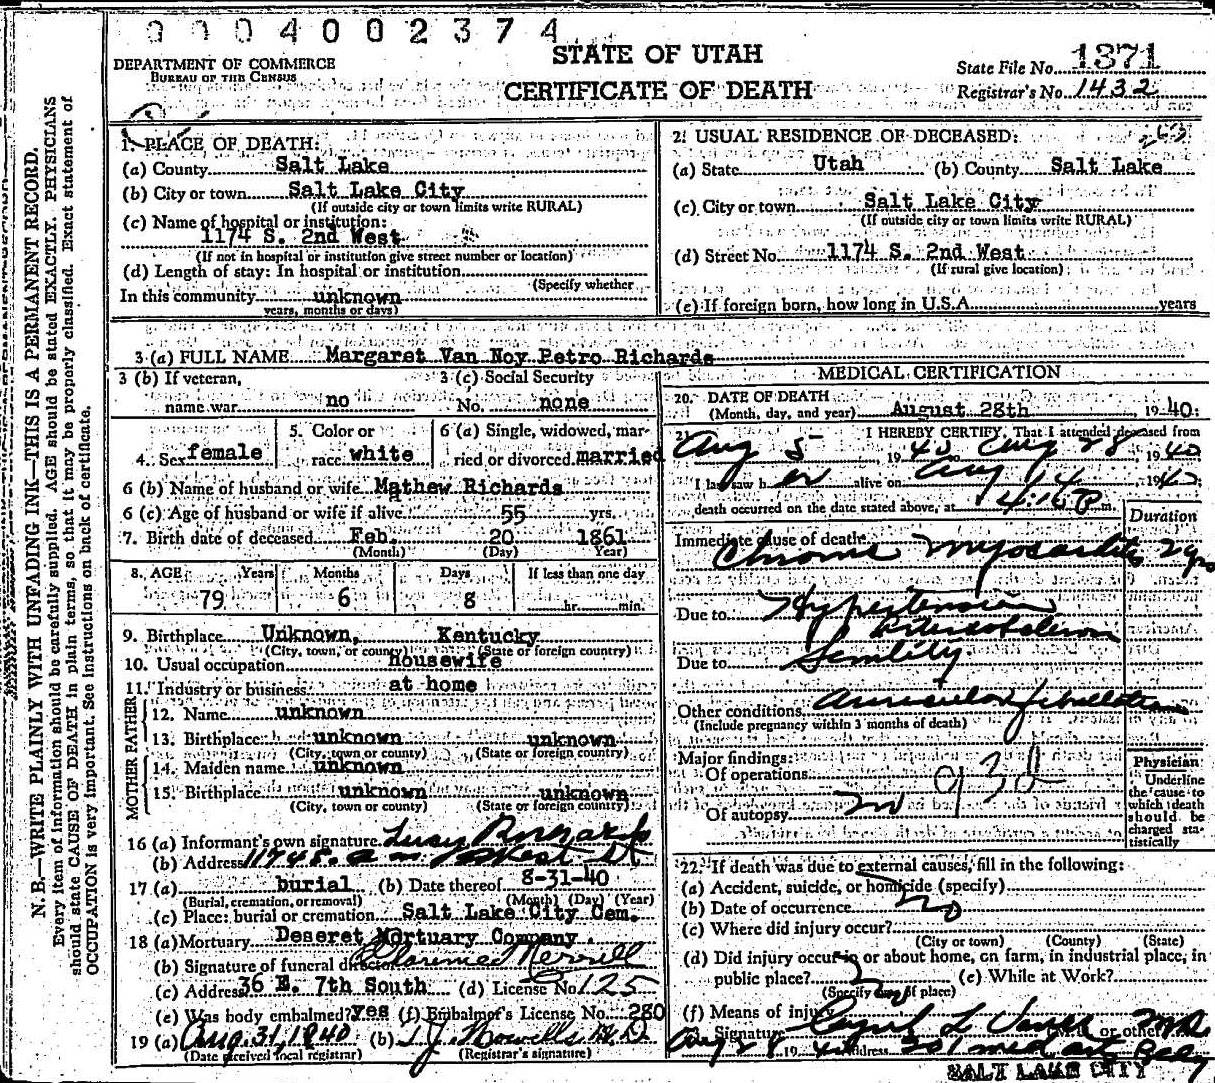 0004002374
STATE OF UTAH
CERTIFICATE OF DEATH
DEPARTMENT OF COMMERCE
BUREAU OF THE CENSUS
State File No. 1371
Registrar's No. 1432
N. B.—WRITE PLAINLY WITH UNFADING INK—THIS IS A PERMANENT RECORD.
Every item of information should be carefully supplied. AGE should be stated EXACTLY. PHYSICIANS
should state CAUSE OF DEATH in plain terms, so that it may be properly classified. Exact statement of
OCCUPATION is very important. See instructions on back of certificate.
1. PLACE OF DEATH:
(a) County Salt Lake
(b) City or town Salt Lake City
(If outside city or town limits write RURAL)
(c) Name of hospital or institution:
1174 S. 2nd West
(If not in hospital or institution give street number or location)
(d) Length of stay: In hospital or institution
(Specify whether
In this community unknown
years, months or days)
2. USUAL RESIDENCE OF DECEASED:
(a) State Utah (b) County Salt Lake
(c) City or town Salt Lake City
(If outside city or town limits write RURAL)
(d) Street No. 1174 S. 2nd West
(If rural give location)
(e) If foreign born, how long in U.S.A. years
3 (a) FULL NAME Margaret Van Noy Petro Richards
3 (b) If veteran, 3 (c) Social Security
name war no No. none
4. Sex female 5. Color or race white 6 (a) Single, widowed, married or divorced married
6 (b) Name of husband or wife Mathew Richards
6 (c) Age of husband or wife if alive 55 yrs.
7. Birth date of deceased Feb. 20 1861
(Month) (Day) Year)
8. AGE Years Months Days If less than one day
79 6 8 hr. min.
9. Birthplace Unknown, Kentucky
(City, town, or county) (State or foreign country)
10. Usual occupation housewife
11. Industry or business at home
FATHER
12. Name unknown
13. Birthplace unknown unknown
(City, town or county) (State or foreign country)
MOTHER
14. Maiden name unknown
15. Birthplace unknown unknown
(City, town or county) (State or foreign country)
16 (a) Informant's own signature Lucy Richards
(b) Address
17 (a) burial (b) Date thereof 8-31-40
(Burial, cremation, or removal) (Month) (Day) (Year)
(c) Place: burial or cremation Salt Lake City Cem.
18 (a) Mortuary Deseret Mortuary Company.
(b) Signature of funeral director Merrill
(c) Address 36 E. 7th South (d) License No. 125
(e) Was body embalmed? yes (f) Embalmer's License No. 280
19 (a) Aug. 31, 1940 (b) T J Howells M.D
(Date received local registrar) (Registrar's signature)
MEDICAL CERTIFICATION
20. DATE OF DEATH
(Month, day, and year) August 28th, 1940:
21. I HEREBY CERTIFY, That I attended deceased from
Aug 5 1940 to Aug 28, 1940
I last saw her alive on Aug 14, 1940
death occurred on the date stated above, at 4:16 P m.
Duration
Immediate cause of death
Chronic myocarditis 2 yrs
Due to Hypertension
Due to Senility
Other conditions Auricular fibrillation
(Include pregnancy within 3 months of death)
Major findings:
Of operations 93d
Of autopsy no
Physician
Underline
the cause to
which death
should be
charged sta-
tistically
22. If death was due to external causes, fill in the following:
(a) Accident, suicide, or homicide (specify)
(b) Date of occurrence no
(c) Where did injury occur?
(City or town) (County) (State)
(d) Did injury occur in or about home, on farm, in industrial place, in
public place? (e) While at Work?
(Specify type of place)
(f) Means of injury
Signature L M.D. or other
Aug 28 1940 Address 301 med arts Bldg
SALT LAKE CITY